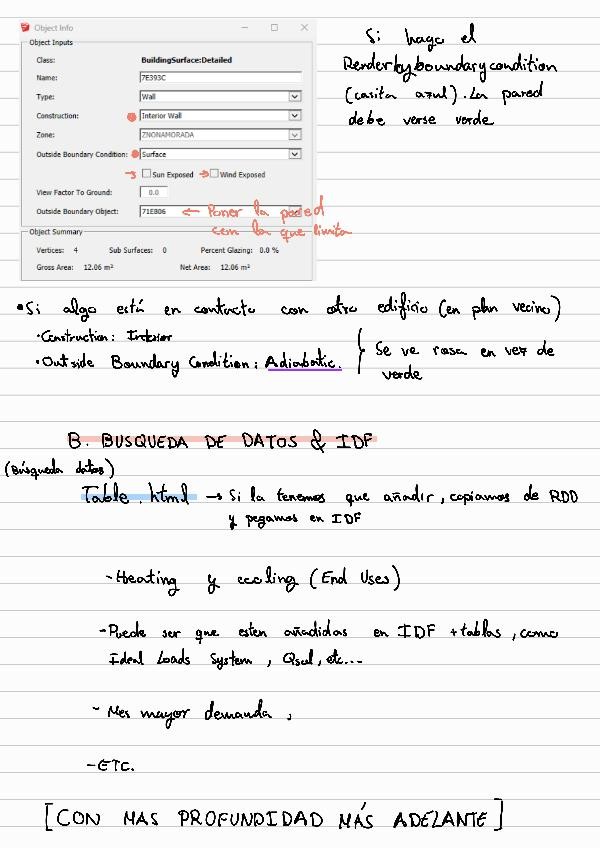 Object Info
Object Inputs
Class: BuildingSurface:Detailed
Name: 7E393C
Type: Wall
Construction: Interior Wall
Zone: ZNONAMORADA
Outside Boundary Condition: Surface
Sun Exposed Wind Exposed
View Factor To Ground: 0.0
Outside Boundary Object: 71E806 ← Poner la pared
con la que limita
Object Summary
Vertices: 4 Sub Surfaces: 0 Percent Glazing: 0.0 %
Gross Area: 12.06 m² Net Area: 12.06 m²
Si hago el
Renderbyboundarycondition
(casita azul). La pared
debe verse verde
• Si algo está en contacto con otro edificio (en plan vecino)
• Construction: Interior
• Outside Boundary Condition: Adiabatic.
Se ve rosa en vez de
verde
B. BUSQUEDA DE DATOS & IDF
(Búsqueda datos)
Table.html → Si la tenemos que añadir, copiamos de RDD
y pegamos en IDF
- Heating y cooling (End Uses)
- Puede ser que esten añadidas en IDF + tablas, como
Ideal Loads System, Qsol, etc...
- Mes mayor demanda,
- ETC.
[CON MAS PROFUNDIDAD MÁS ADELANTE]